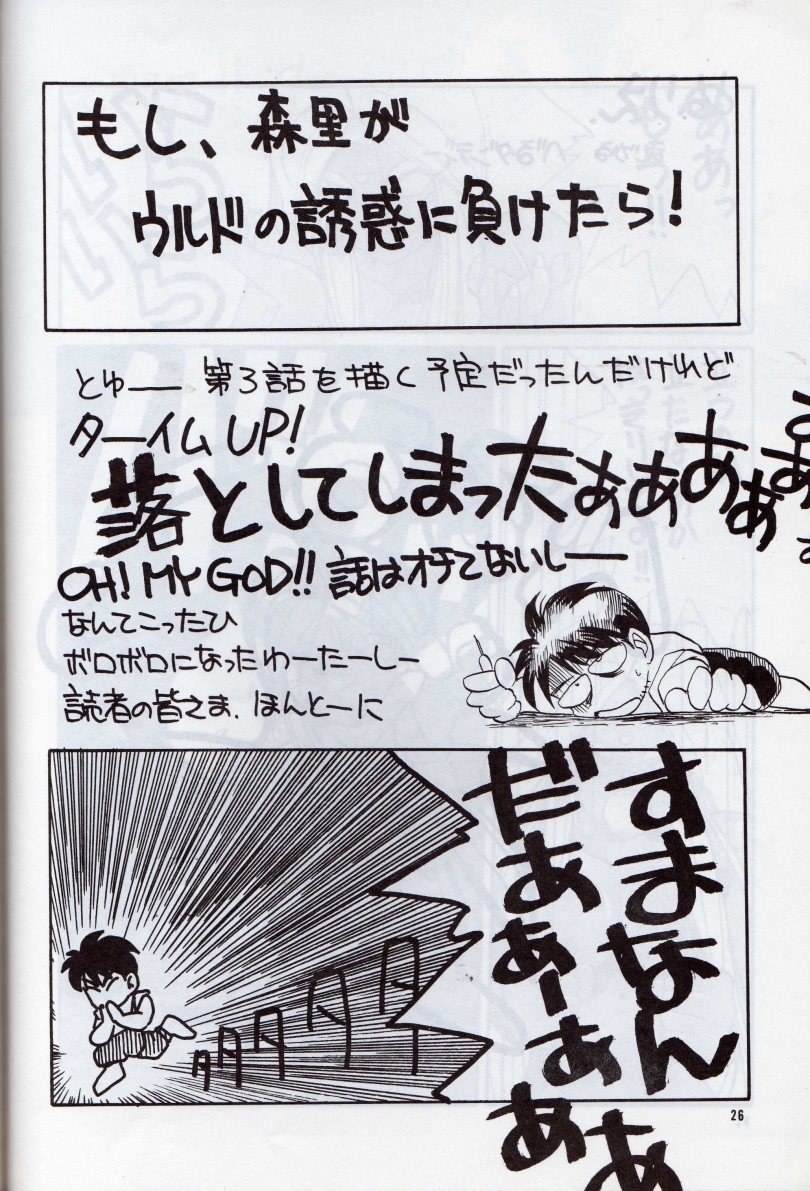 もし、森里が
ウルドの誘惑に負けたら!
とゆー 第3話を描く予定だったんだけれど
タームUP!
落としてしまったぁぁあぁ
OH! MY GOD!! 話はオチてないしー
なんてこったひ
ボロボロになったわーたーしー
読者の皆さま、ほんとーに
すまなん
だあぁーぁあぁ
26